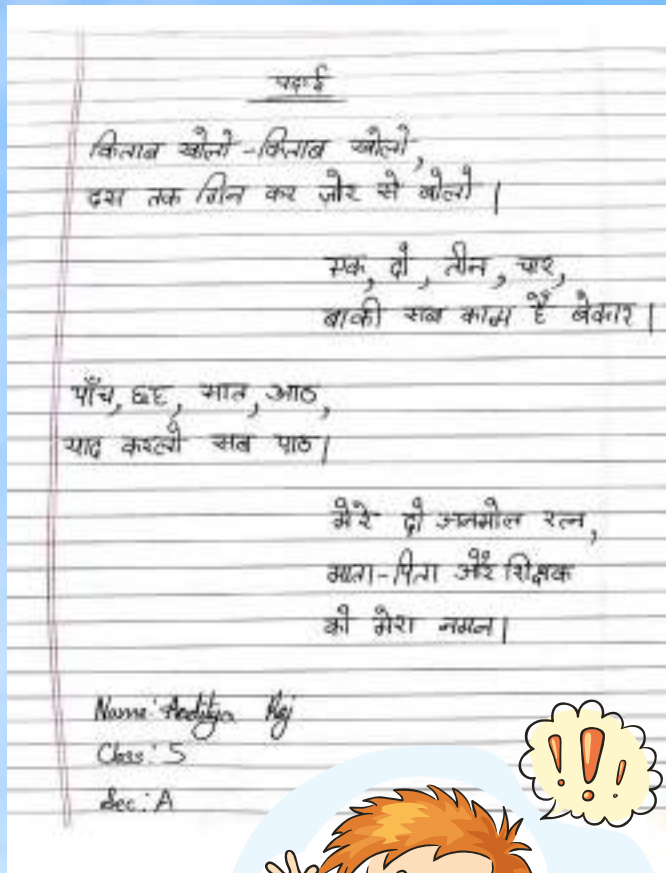 पढ़ाई
किताब खोलो - किताब खोलो,
दस तक गिन कर ज़ोर से बोलो।
एक, दो, तीन, चार,
बाकी सब काम हैं बेकार।
पाँच, छह, सात, आठ,
याद करलो सब पाठ।
मेरे दो अनमोल रत्न,
माता-पिता और शिक्षक
को मेरा नमन।
Name: Aaditya Raj
Class: 5
Sec: A
!!!